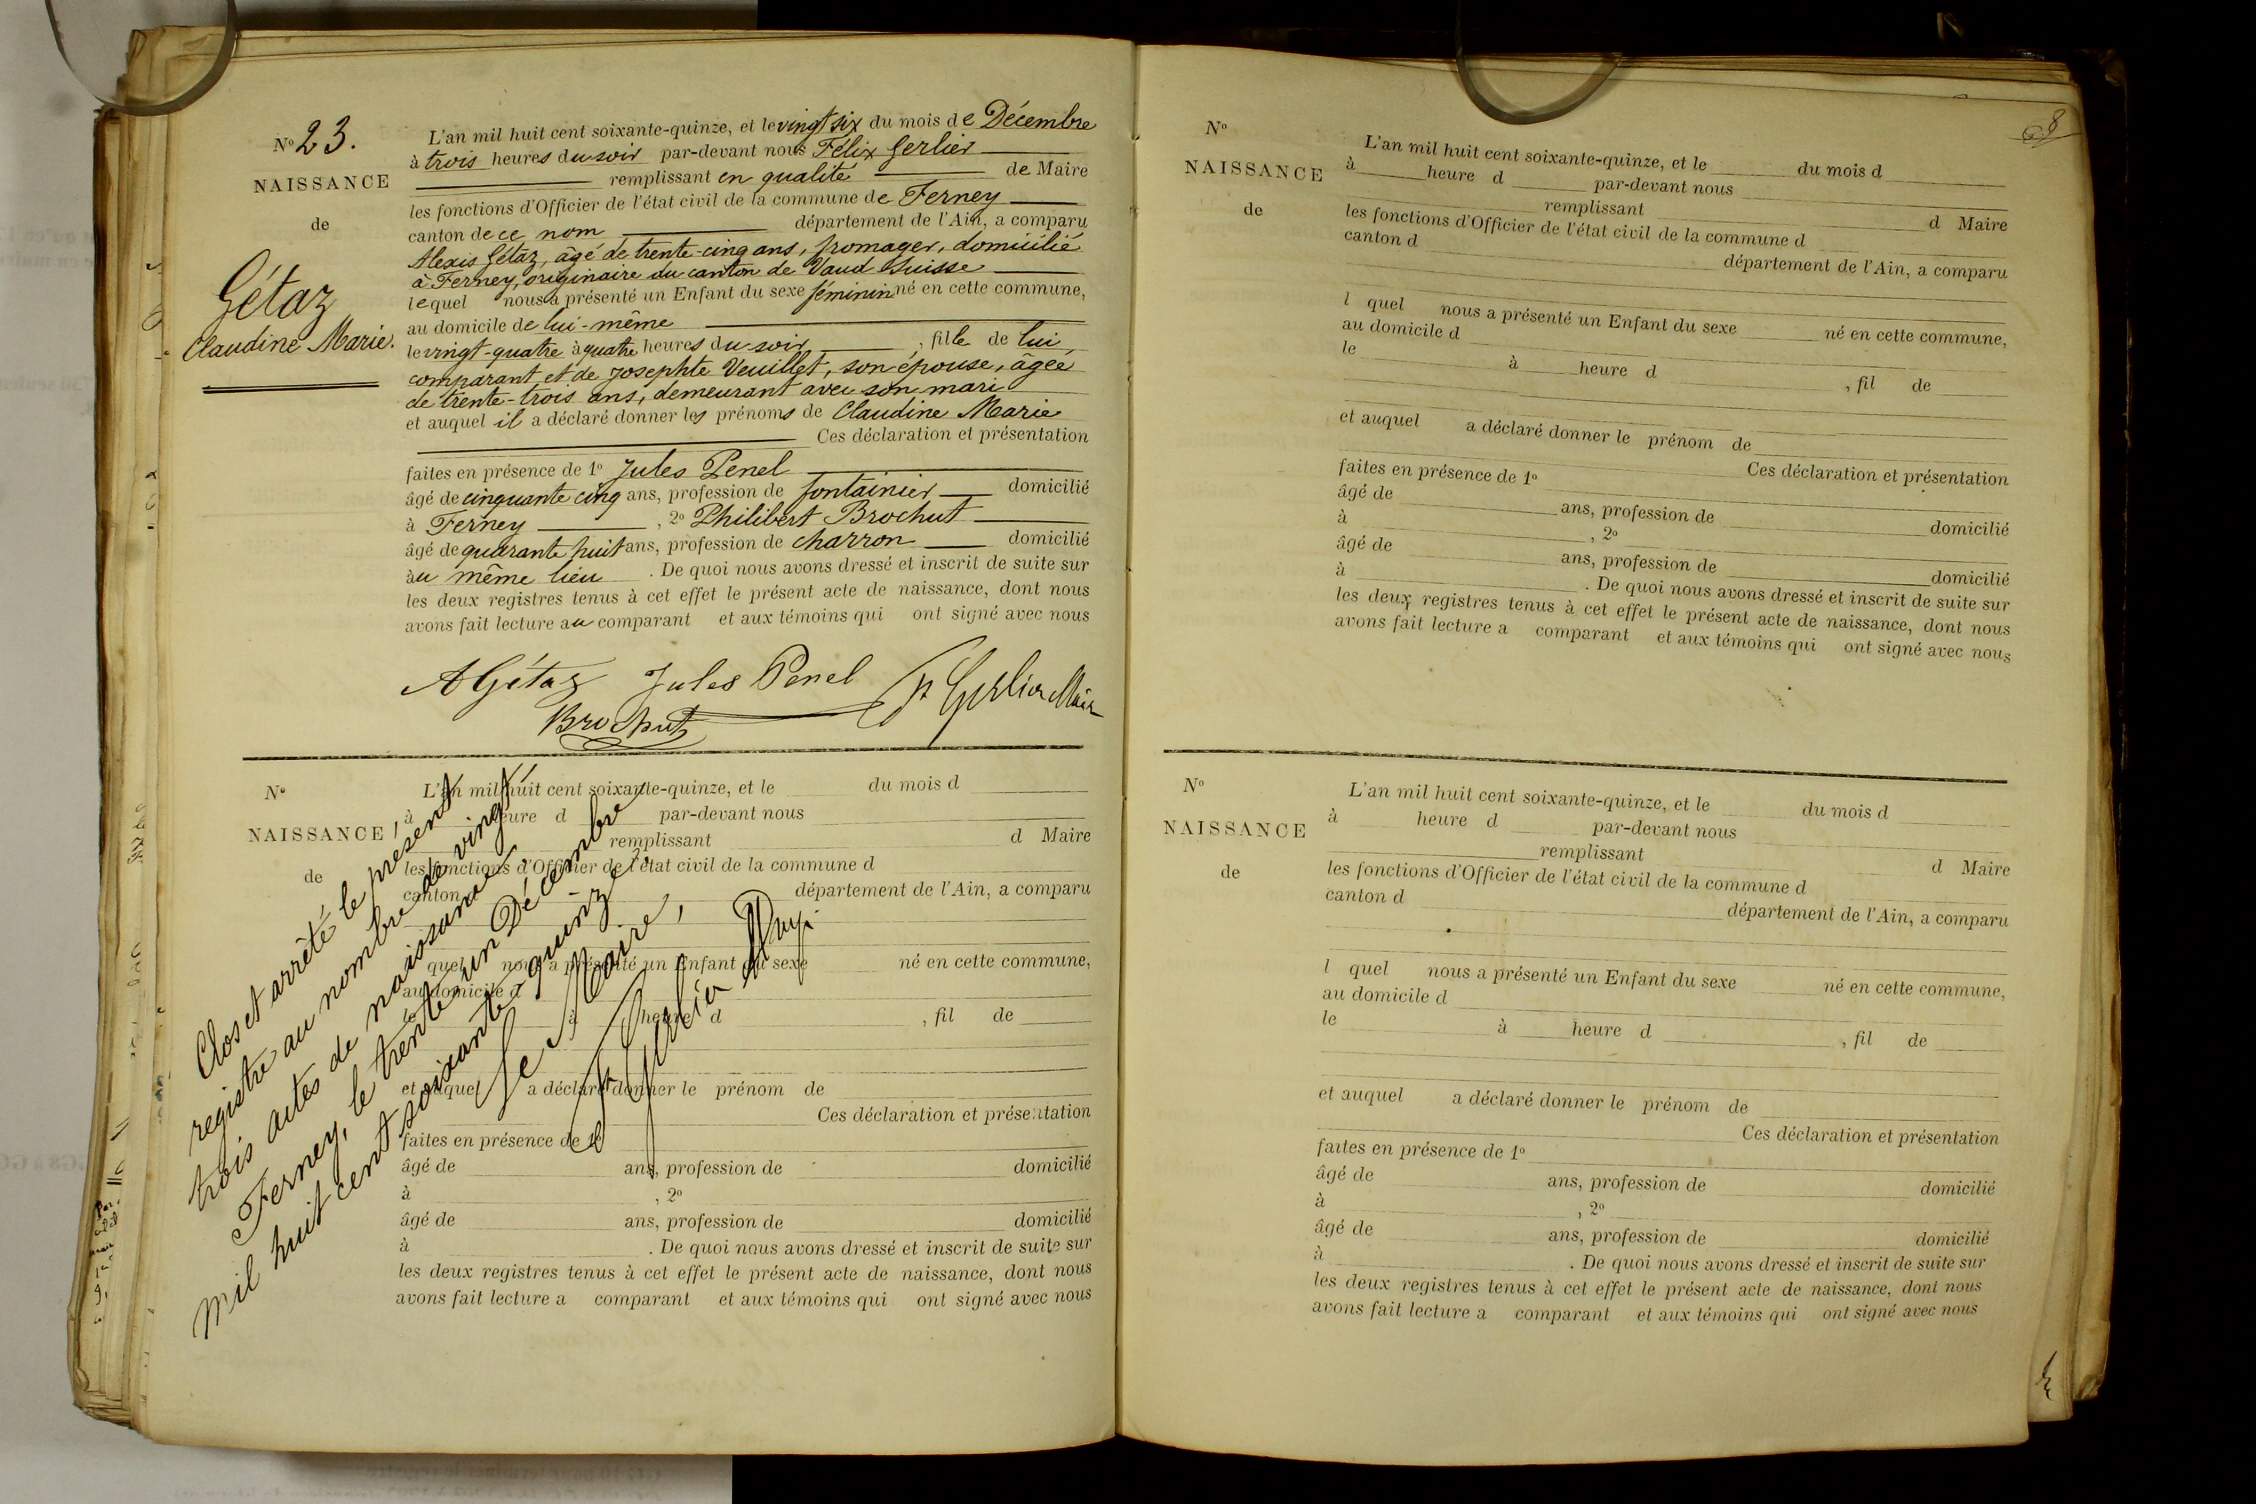 N° 23.
NAISSANCE
de
Gétaz
Claudine Marie.
L'an mil huit cent soixante-quinze, et le vingt six du mois de Décembre
à trois heures du soir par-devant nous Félix Gerlier
remplissant en qualité de Maire
les fonctions d'Officier de l'état civil de la commune de Ferney
canton de ce nom département de l'Ain, a comparu
Alexis Gétaz, âgé de trente-cinq ans, fromager, domicilié
à Ferney, originaire du canton de Vaud Suisse
lequel nous a présenté un Enfant du sexe féminin né en cette commune,
au domicile de lui-même
le vingt-quatre à quatre heures du soir, fille de lui
comparant et de Josephte Veuillet, son épouse, âgée
de trente-trois ans, demeurant avec son mari
et auquel il a déclaré donner les prénoms de Claudine Marie
Ces déclaration et présentation
faites en présence de 1° Jules Penel
âgé de cinquante cinq ans, profession de fontainier domicilié
à Ferney, 2° Philibert Brochut
âgé de quarante huit ans, profession de charron domicilié
au même lieu. De quoi nous avons dressé et inscrit de suite sur
les deux registres tenus à cet effet le présent acte de naissance, dont nous
avons fait lecture au comparant et aux témoins qui ont signé avec nous
AGétaz Jules Penel Gerlier Maire
Brochut
N°
NAISSANCE
de
L'an mil huit cent soixante-quinze, et le du mois d
à heure d par-devant nous
remplissant d Maire
les fonctions d'Officier de l'état civil de la commune d
canton d département de l'Ain, a comparu
l quel nous a présenté un Enfant du sexe né en cette commune,
au domicile d
le à heure d , fil de
et auquel a déclaré donner le prénom de
Ces déclaration et présentation
faites en présence de 1°
âgé de ans, profession de domicilié
à , 2°
âgé de ans, profession de domicilié
à . De quoi nous avons dressé et inscrit de suite sur
les deux registres tenus à cet effet le présent acte de naissance, dont nous
avons fait lecture a comparant et aux témoins qui ont signé avec nous
Clos et arrêté le présent
registre au nombre de vingt
trois actes de naissance,
Ferney, le trente-un Décembre
mil huit cent soixante-quinze.
Le Maire,
Gerlier
N°
NAISSANCE
de
L'an mil huit cent soixante-quinze, et le du mois d
à heure d par-devant nous
remplissant d Maire
les fonctions d'Officier de l'état civil de la commune d
canton d département de l'Ain, a comparu
l quel nous a présenté un Enfant du sexe né en cette commune,
au domicile d
le à heure d , fil de
et auquel a déclaré donner le prénom de
Ces déclaration et présentation
faites en présence de 1°
âgé de ans, profession de domicilié
à , 2°
âgé de ans, profession de domicilié
à . De quoi nous avons dressé et inscrit de suite sur
les deux registres tenus à cet effet le présent acte de naissance, dont nous
avons fait lecture a comparant et aux témoins qui ont signé avec nous
N°
NAISSANCE
de
L'an mil huit cent soixante-quinze, et le du mois d
à heure d par-devant nous
remplissant d Maire
les fonctions d'Officier de l'état civil de la commune d
canton d département de l'Ain, a comparu
l quel nous a présenté un Enfant du sexe né en cette commune,
au domicile d
le à heure d , fil de
et auquel a déclaré donner le prénom de
Ces déclaration et présentation
faites en présence de 1°
âgé de ans, profession de domicilié
à , 2°
âgé de ans, profession de domicilié
à . De quoi nous avons dressé et inscrit de suite sur
les deux registres tenus à cet effet le présent acte de naissance, dont nous
avons fait lecture a comparant et aux témoins qui ont signé avec nous